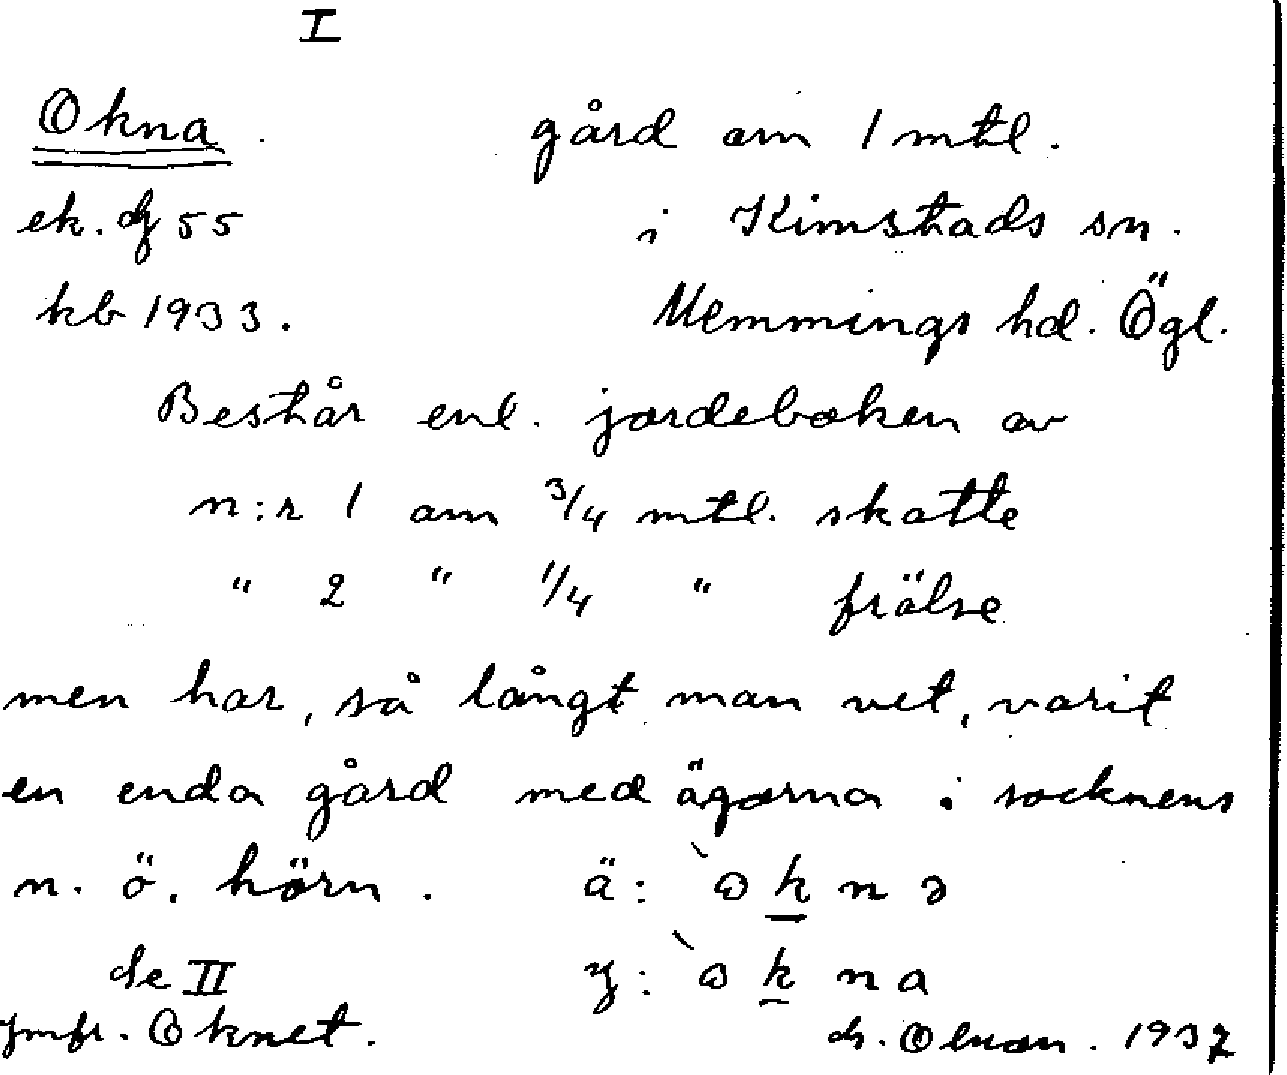 I
Okna. gård om 1 mtl.
ek. 55 i Kimstads sn.
kb 1933. Memmings hd. Ögl.
Består enl. jordeboken av
n:r 1 om 3/4 mtl. skatte
" 2 " 1/4 " frälse
men har, så långt man vet, varit
en enda gård med ägorna i socknens
n. ö. hörn. ä: `ɷknə
de II y: `ɷkna
Jmfr. Oknet. 1937